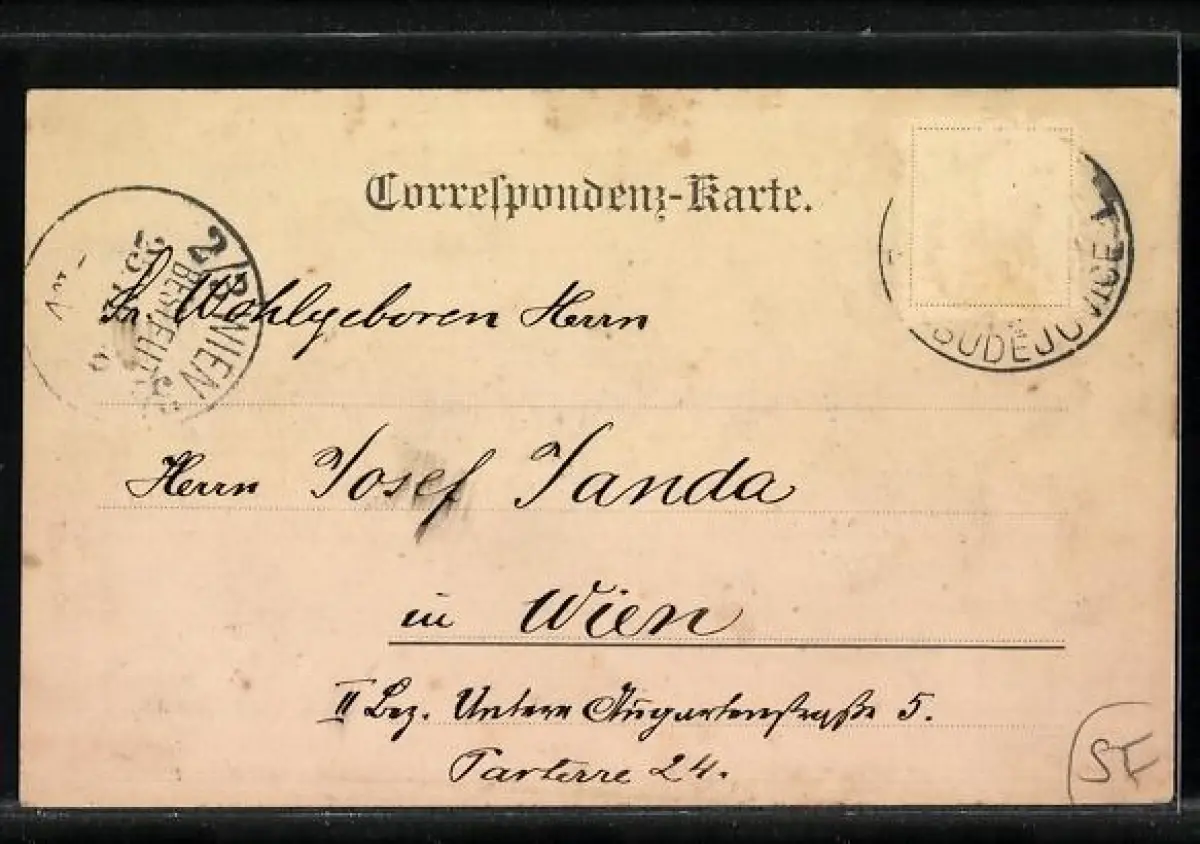 Correspondenz-Karte.
BUDEJOVICE
2/2 WIEN
BESTELLT
Sr. Wohlgeboren Herrn
Herrn Josef Janda
in Wien
II Bez. Untere Augartenstraße 5.
Parterre 24.
SF